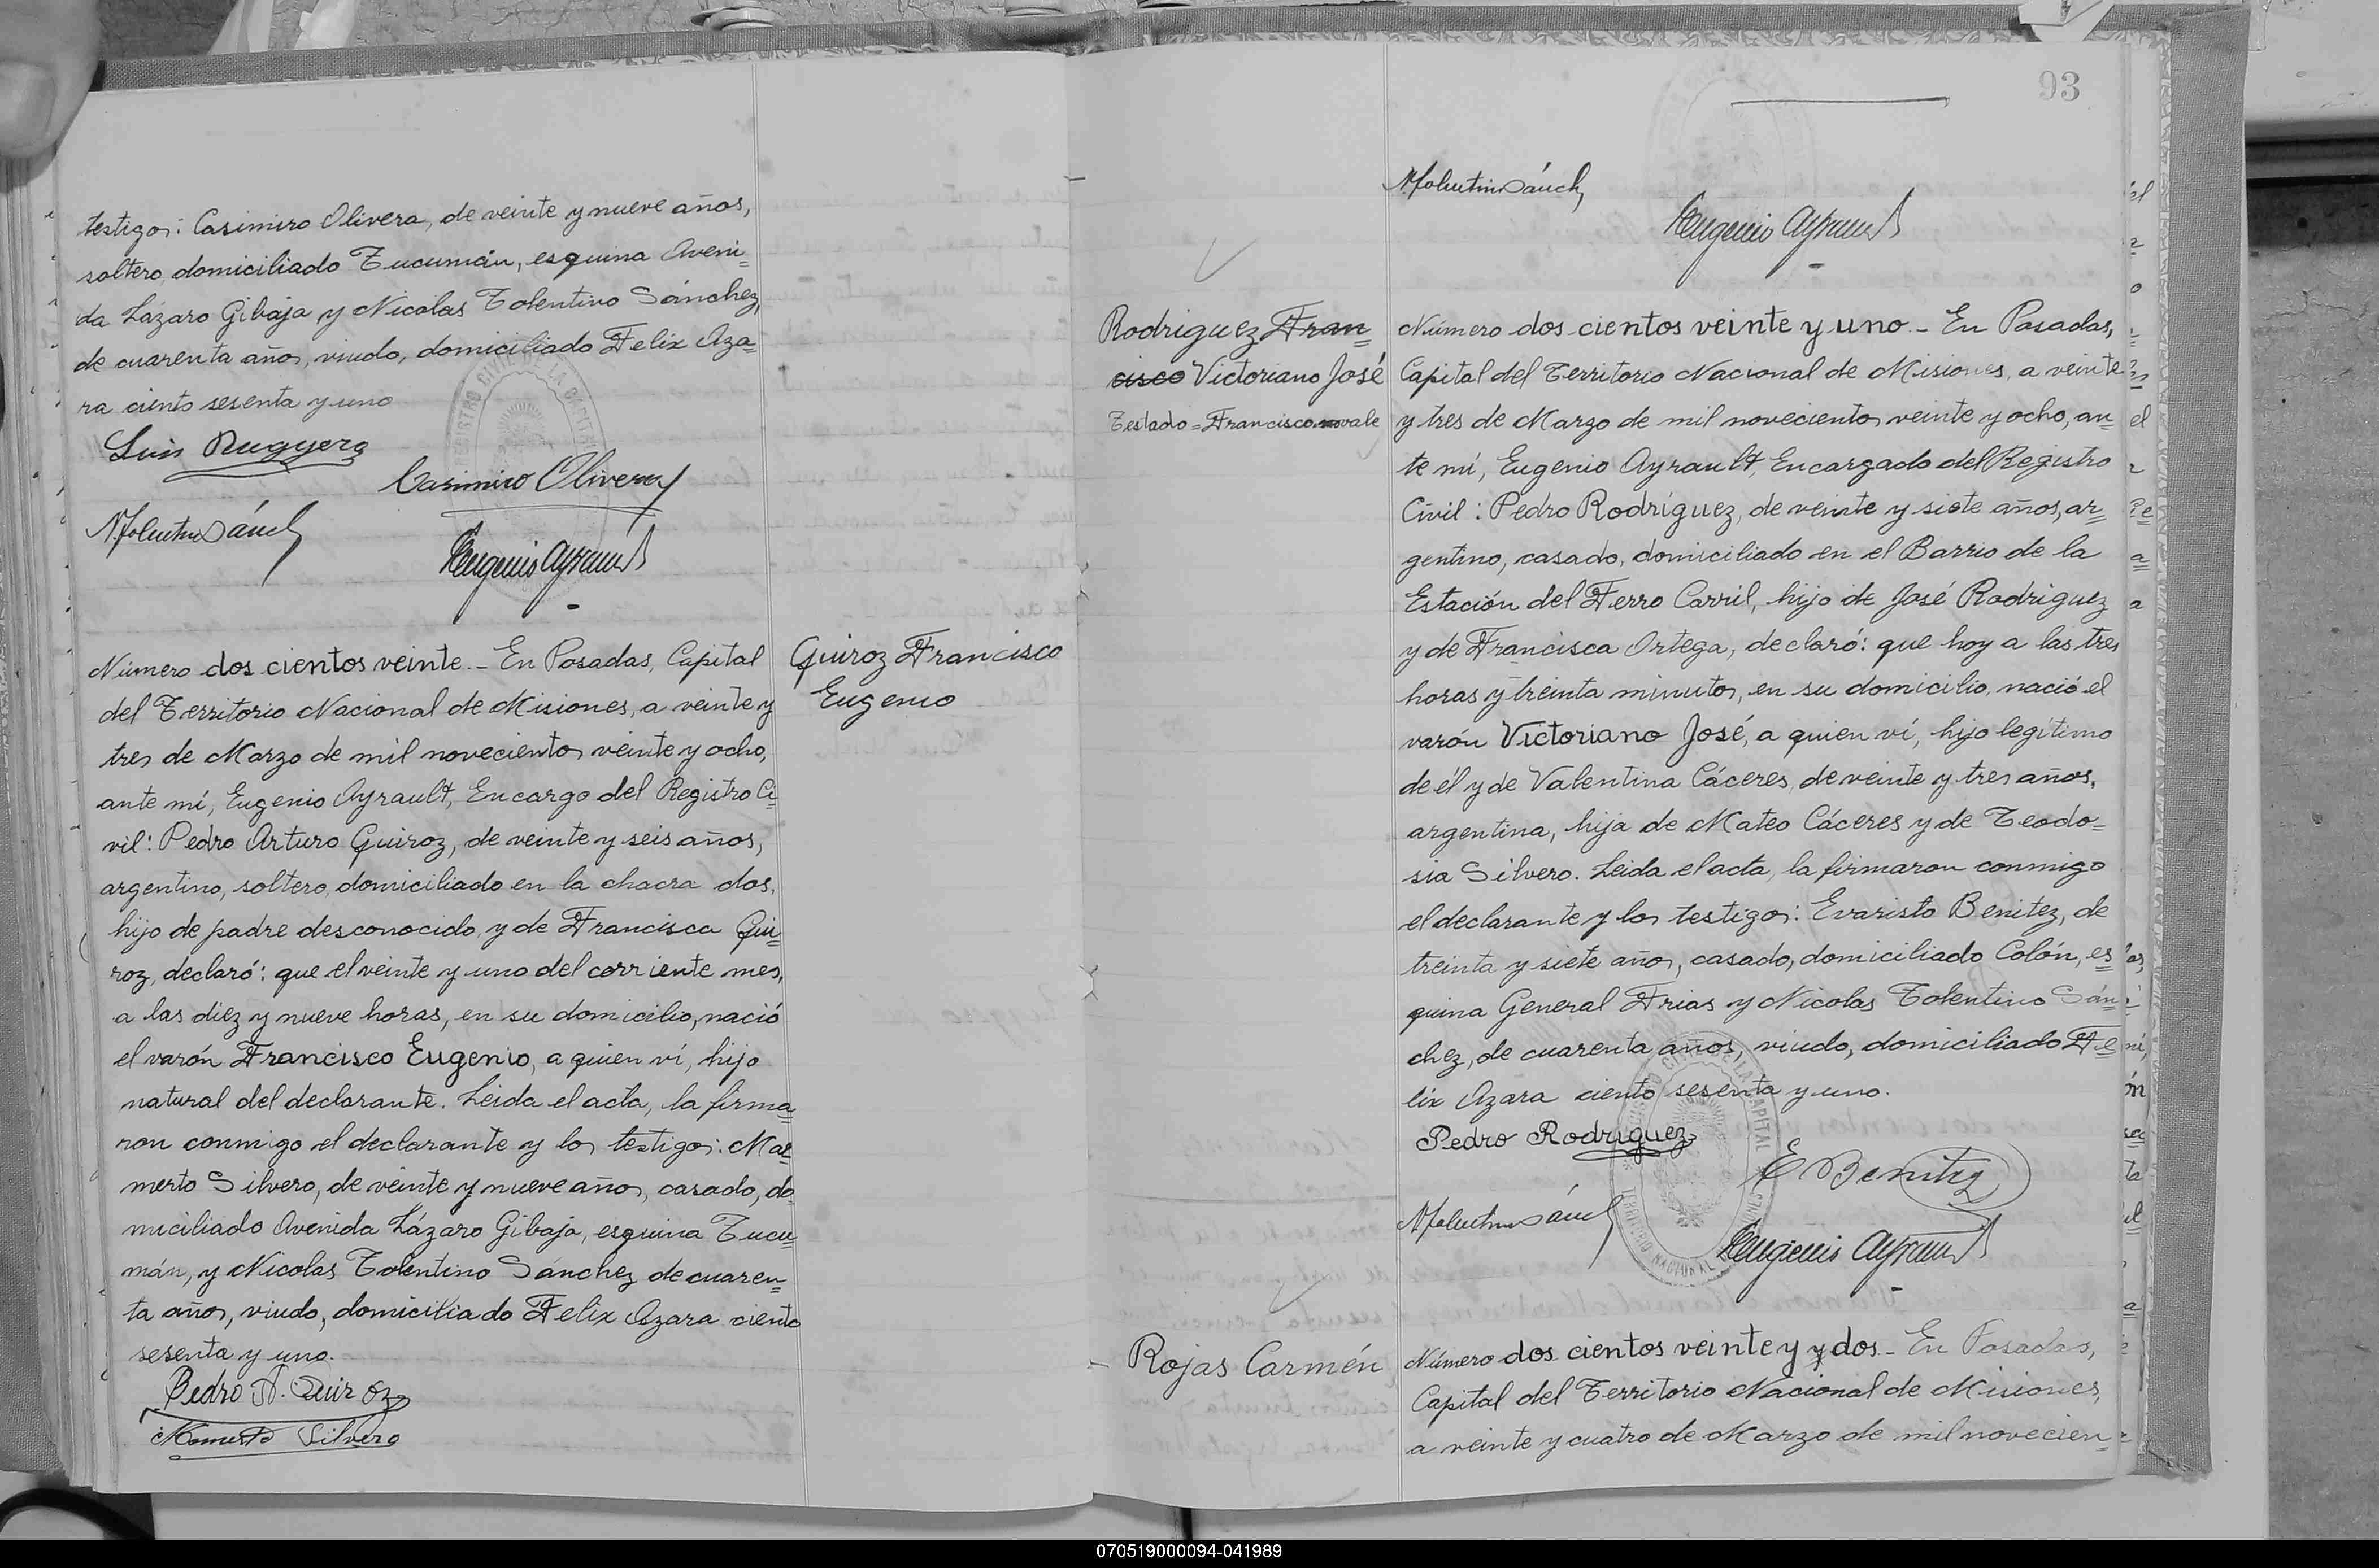 testigos: Casimiro Olivera, de veinte y nueve años,
soltero, domiciliado Tucumán, esquina Aveni=
da Lázaro Gibaja y Nicolas Tolentino Sánchez,
de cuarenta años, viudo, domiciliado Felix Aza=
ra ciento sesenta y uno
Luis Ruggero
Casimiro Olivera
N. Tolentino Sánch
Eugenio Ayrault
Número dos cientos veinte.- En Posadas, Capital
del Territorio Nacional de Misiones, a veinte y
tres de Marzo de mil novecientos veinte y ocho,
ante mí, Eugenio Ayrault, Encargo del Registro Ci=
vil: Pedro Arturo Quiroz, de veinte y seis años,
argentino, soltero, domiciliado en la chacra dos,
hijo de padre desconocido y de Francisca Qui=
roz, declaró: que el veinte y uno del corriente mes,
a las diez y nueve horas, en su domicilio, nació
el varón Francisco Eugenio, a quien ví, hijo
natural del declarante. Leida el acta, la firma=
ron conmigo el declarante y los testigos: Ma=
merto Silvero, de veinte y nueve años, casado, do=
miciliado Avenida Lázaro Gibaja, esquina Tucu=
mán, y Nicolas Tolentino Sánchez de cuaren=
ta años, viudo, domiciliado Felix Azara ciento
sesenta y uno.
Pedro A. Quiroz
Mamerto Silvero
Quiroz Francisco
Eugenio
93
N. Tolentino Sánch
Eugenio Ayrault
Rodriguez Fran=
cisco Victoriano José
Testado = Francisco no vale
Número dos cientos veinte y uno.- En Posadas,
Capital del Territorio Nacional de Misiones, a veinte
y tres de Marzo de mil novecientos veinte y ocho, an=
te mí, Eugenio Ayrault, Encargado del Registro
Civil: Pedro Rodríguez, de veinte y siete años, ar=
gentino, casado, domiciliado en el Barrio de la
Estación del Ferro Carril, hijo de José Rodriguez
y de Francisca Ortega, declaró: que hoy a las tres
horas y treinta minutos, en su domicilio, nació el
varón Victoriano José, a quien ví, hijo legítimo
de él y de Valentina Cáceres, de veinte y tres años,
argentina, hija de Mateo Cáceres y de Teodo=
sia Silvero. Leida el acta, la firmaron conmigo
el declarante y los testigos: Evaristo Benitez, de
treinta y siete años, casado, domiciliado Colón, es=
quina General Frias y Nicolas Tolentino Sán=
chez, de cuarenta años, viudo, domiciliado Fe=
lix Azara ciento sesenta y uno.
Pedro Rodriguez
E Benitez
N. Tolentino Sánch
Eugenio Ayrault
Rojas Carmén
Número dos cientos veinte y y dos.- En Posadas,
Capital del Territorio Nacional de Misiones,
a veinte y cuatro de Marzo de mil novecien=
070519000094-041989